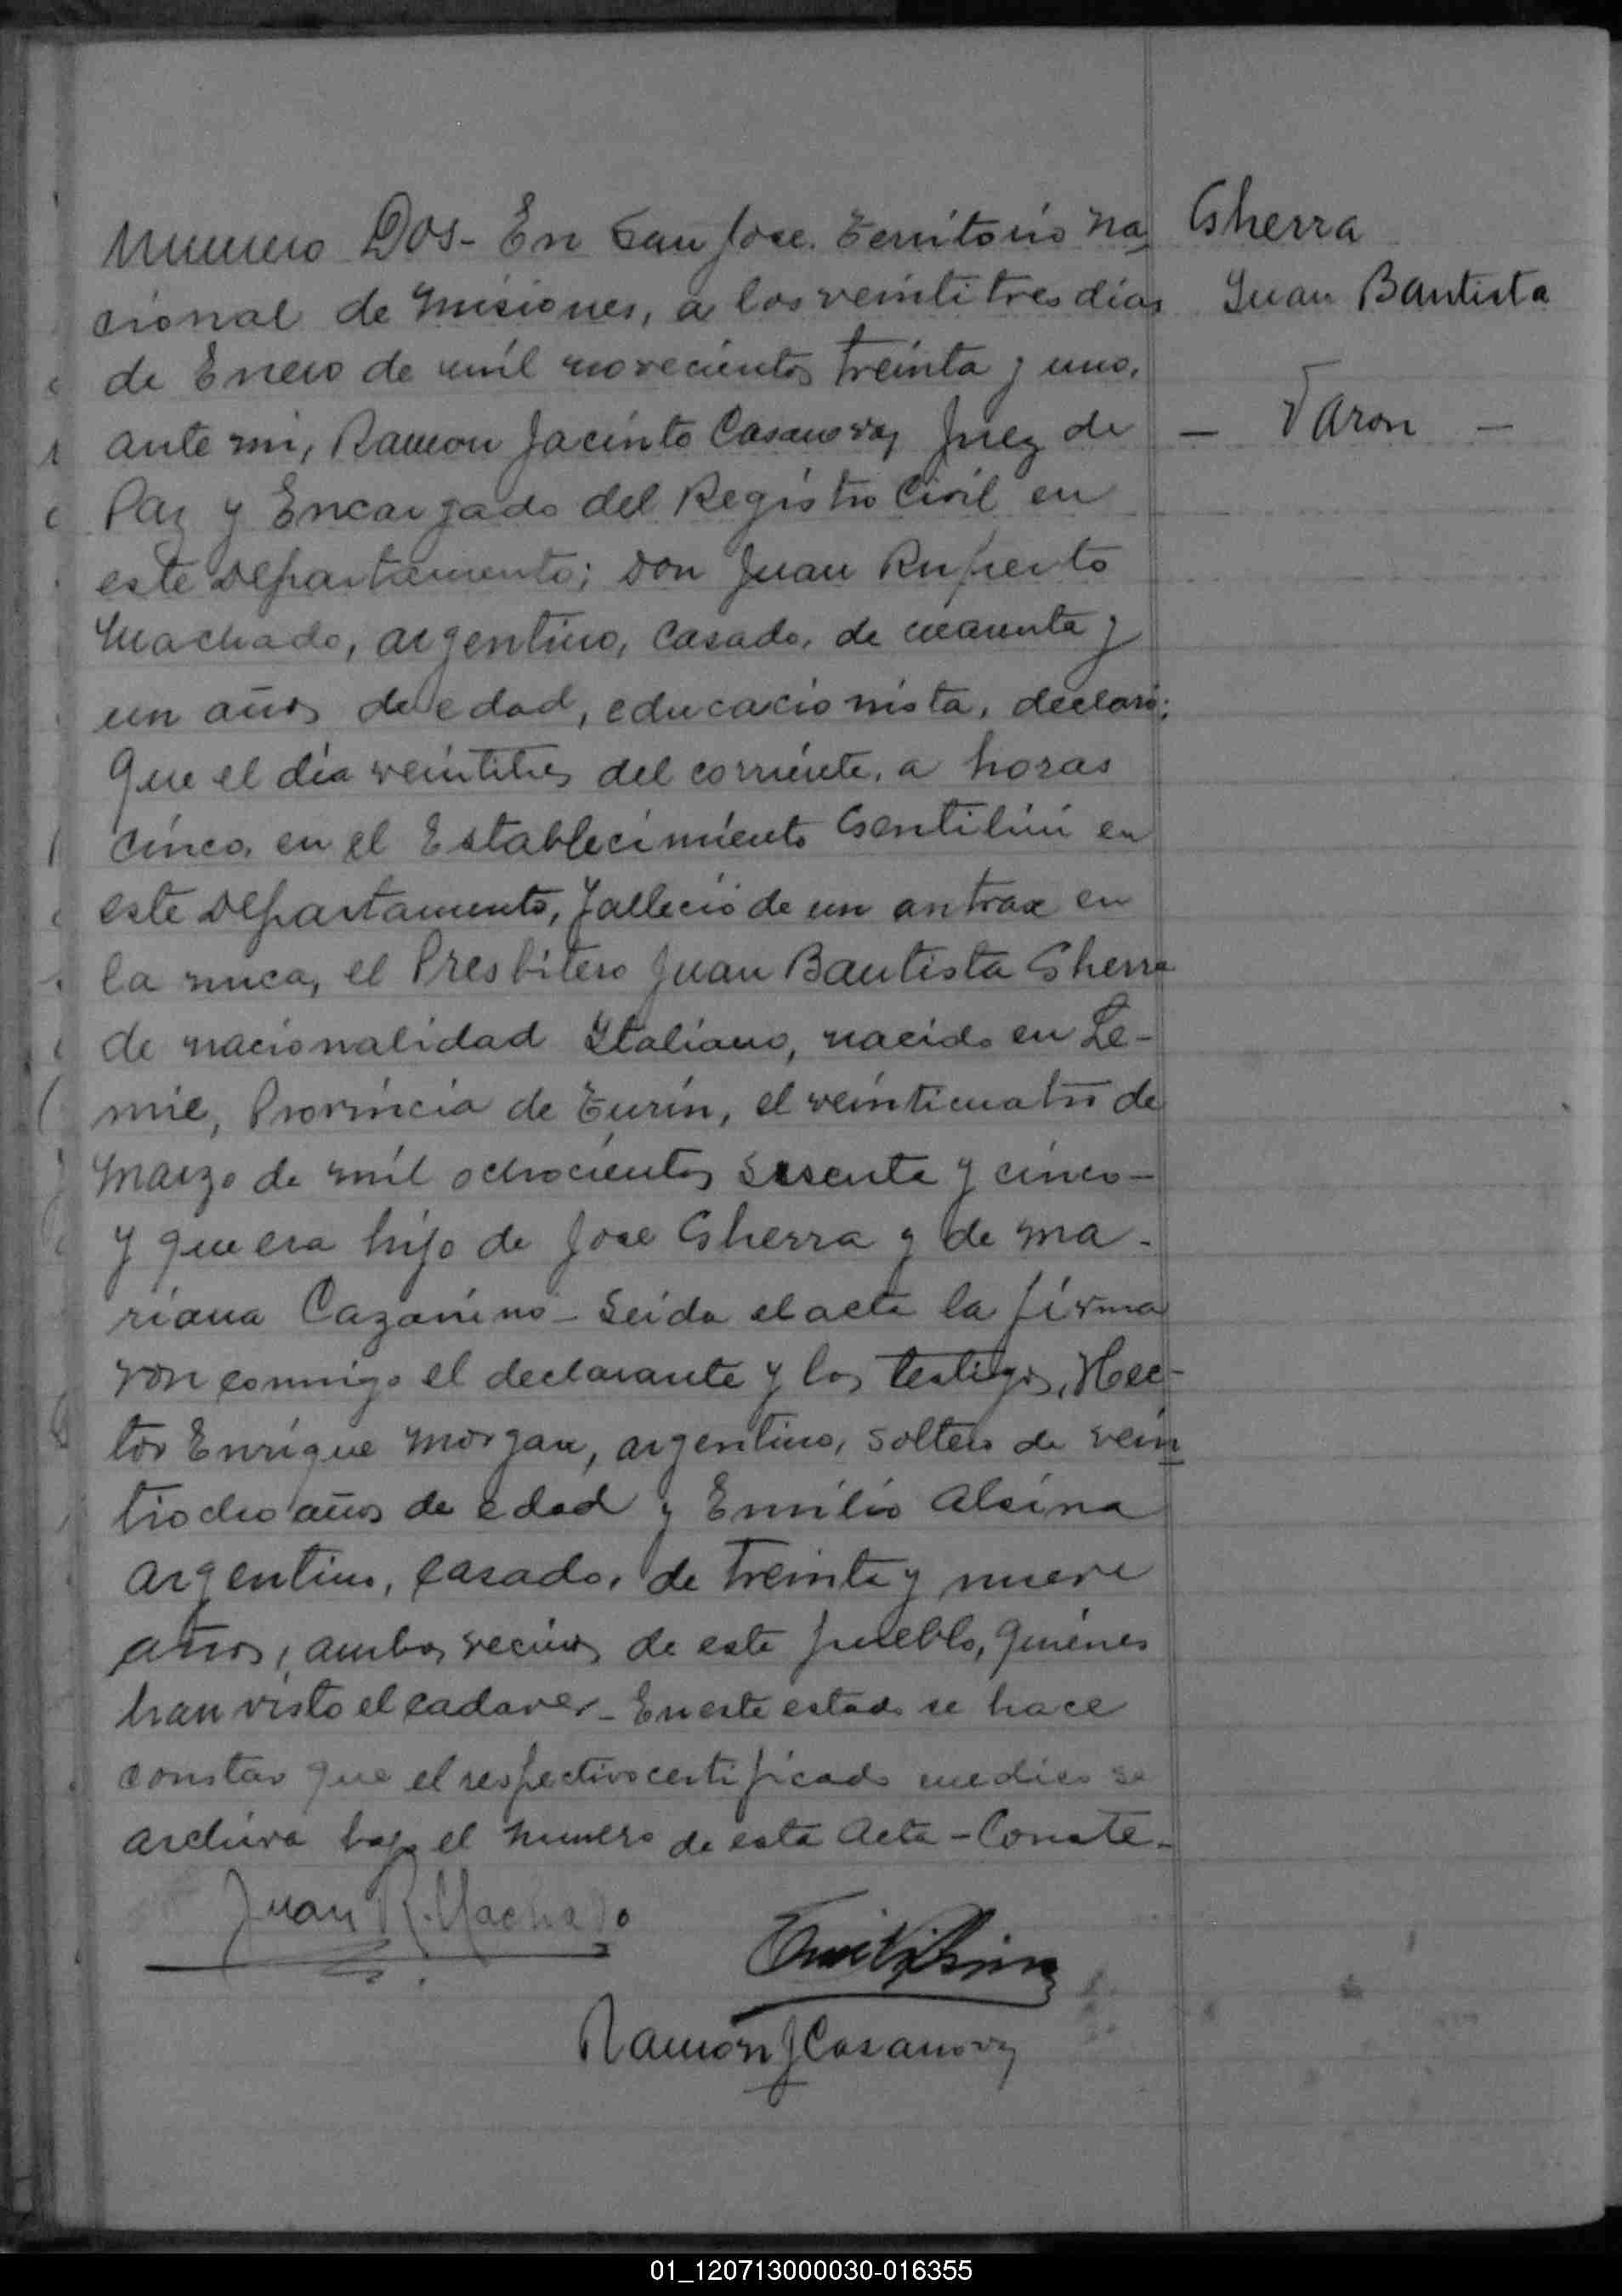 Numero Dos- En San Jose. Territorio Na
cional de Misiones, a los veintitres dias
de Enero de mil novecientos treinta y uno,
ante mi, Ramon Jacinto Casanova, Juez de
Paz y Encargado del Registro Civil en
este Departamento; Don Juan Ruperto
Machado, argentino, casado, de cuarenta y
un años de edad, educacionista, declaró:
Que el dia veintitres del corriente, a horas
cinco, en el Establecimiento Gentilini en
este Departamento, falleció de un antrax en
la nuca, el Presbitero Juan Bautista Gherra
de nacionalidad Italiano, nacido en Le-
mie, Provincia de Turin, el veinticuatro de
Marzo de mil ochocientos sesenta y cinco-
y que era hijo de Jose Gherra y de Ma-
riana Cazanino- Leida el acta la firma
ron conmigo el declarante y los testigos, Hec-
tor Enrique Morgan, argentino, soltero de vein
tiocho años de edad y Emilio Alsina
argentino, casado, de treinta y nueve
años, ambos vecinos de este pueblo, quienes
han visto el cadaver- En este estado se hace
constar que el respectivo certificado medico se
archiva bajo el numero de esta Acta-Conste-
Juan R. Machado
Emilio Alsina
Ramón J Casanova
Gherra
Juan Bautista
- Varon -
01_120713000030-016355